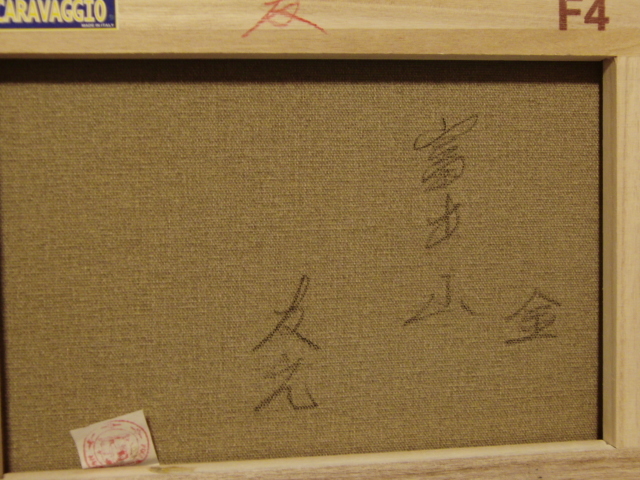 CARAVAGGIO
MADE IN ITALY
友
F4
富士山
金
友光